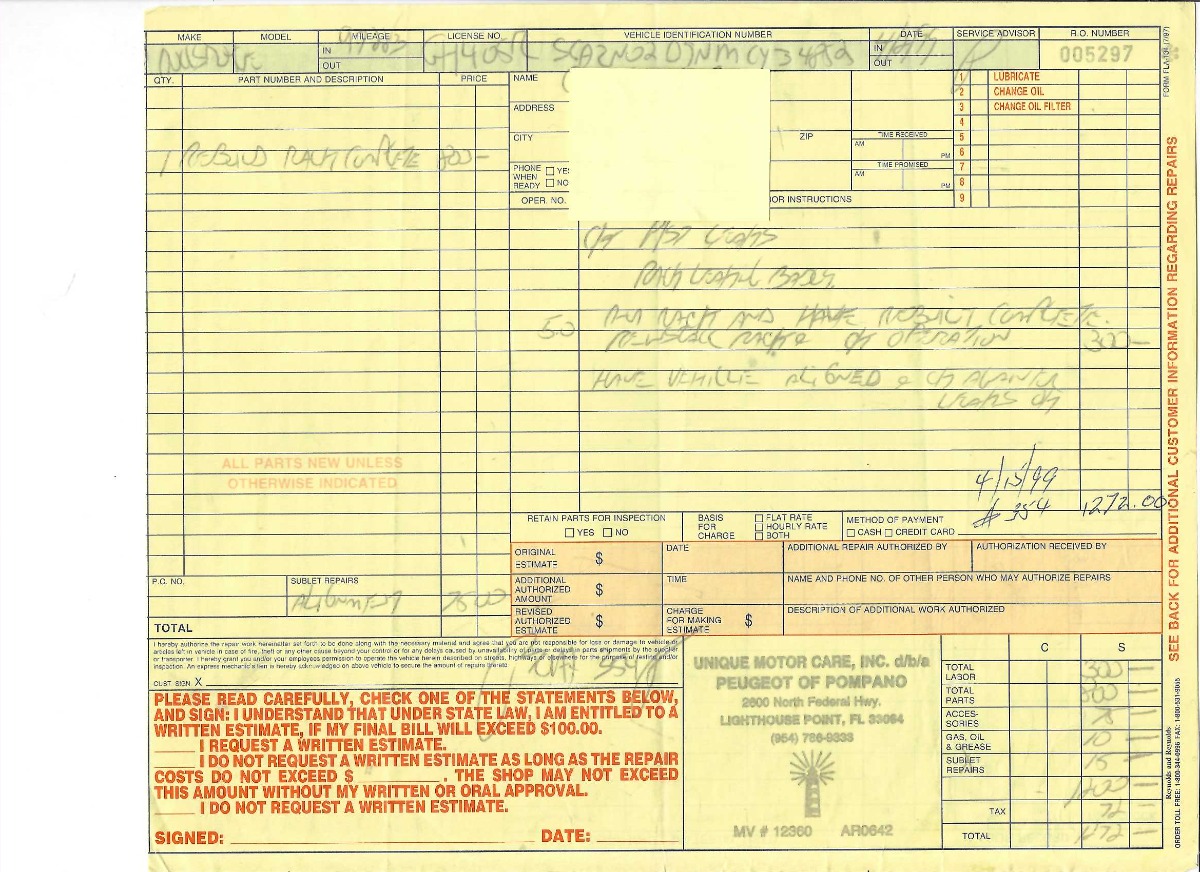 MAKE MODEL MILEAGE LICENSE NO. VEHICLE IDENTIFICATION NUMBER DATE SERVICE ADVISOR R.O. NUMBER
IN OUT IN OUT 005297
QTY. PART NUMBER AND DESCRIPTION PRICE
1 REBUILD RACK COMPLETE 800-
ALL PARTS NEW UNLESS
OTHERWISE INDICATED
P.C. NO. SUBLET REPAIRS
ALIGNMENT
TOTAL
NAME
ADDRESS
CITY ZIP
PHONE WHEN READY YES NO
TIME RECEIVED
AM PM
TIME PROMISED
AM PM
1 LUBRICATE
2 CHANGE OIL
3 CHANGE OIL FILTER
4
5
6
7
8
9
OPER. NO. OR INSTRUCTIONS
LEAKS
RACK LEAKING BADLY
5.0 RACK AND HAVE REBUILT COMPLETE.
REINSTALL RACK & OPERATION 300-
HAVE VEHICLE ALIGNED &
LEAKS OK
4/15/99
# 354 1272.00
RETAIN PARTS FOR INSPECTION
YES NO
BASIS FOR CHARGE
FLAT RATE
HOURLY RATE
BOTH
METHOD OF PAYMENT
CASH CREDIT CARD
ORIGINAL ESTIMATE $ DATE ADDITIONAL REPAIR AUTHORIZED BY AUTHORIZATION RECEIVED BY
ADDITIONAL AUTHORIZED AMOUNT $ TIME NAME AND PHONE NO. OF OTHER PERSON WHO MAY AUTHORIZE REPAIRS
REVISED AUTHORIZED ESTIMATE $ CHARGE FOR MAKING ESTIMATE $ DESCRIPTION OF ADDITIONAL WORK AUTHORIZED
I hereby authorize the repair work hereinafter set forth to be done along with the necessary material and agree that you are not responsible for loss or damage to vehicle or
articles left in vehicle in case of fire, theft or any other cause beyond your control or for any delays caused by unavailability of parts or delays in parts shipments by the supplier
or transporter. I hereby grant you and/or your employees permission to operate the vehicle herein described on streets, highways or elsewhere for the purpose of testing and/or
inspection. An express mechanic's lien is hereby acknowledged on above vehicle to secure the amount of repairs thereto.
CUST. SIGN. X
PLEASE READ CAREFULLY, CHECK ONE OF THE STATEMENTS BELOW,
AND SIGN: I UNDERSTAND THAT UNDER STATE LAW, I AM ENTITLED TO A
WRITTEN ESTIMATE, IF MY FINAL BILL WILL EXCEED $100.00.
I REQUEST A WRITTEN ESTIMATE.
I DO NOT REQUEST A WRITTEN ESTIMATE AS LONG AS THE REPAIR
COSTS DO NOT EXCEED $ . THE SHOP MAY NOT EXCEED
THIS AMOUNT WITHOUT MY WRITTEN OR ORAL APPROVAL.
I DO NOT REQUEST A WRITTEN ESTIMATE.
SIGNED: DATE:
UNIQUE MOTOR CARE, INC. d/b/a
PEUGEOT OF POMPANO
2600 North Federal Hwy.
LIGHTHOUSE POINT, FL 33064
(954) 786-9333
MV # 12360 AR0642
C S
TOTAL LABOR 300-
TOTAL PARTS 800-
ACCES-SORIES
GAS, OIL & GREASE 10-
SUBLET REPAIRS 15-
1200-
TAX 72-
TOTAL 1272-
FORM FLA-TOR (7/97)
SEE BACK FOR ADDITIONAL CUSTOMER INFORMATION REGARDING REPAIRS
Reynolds and Reynolds
ORDER TOLL FREE: 1-800-344-0996 FAX: 1-800-531-9055